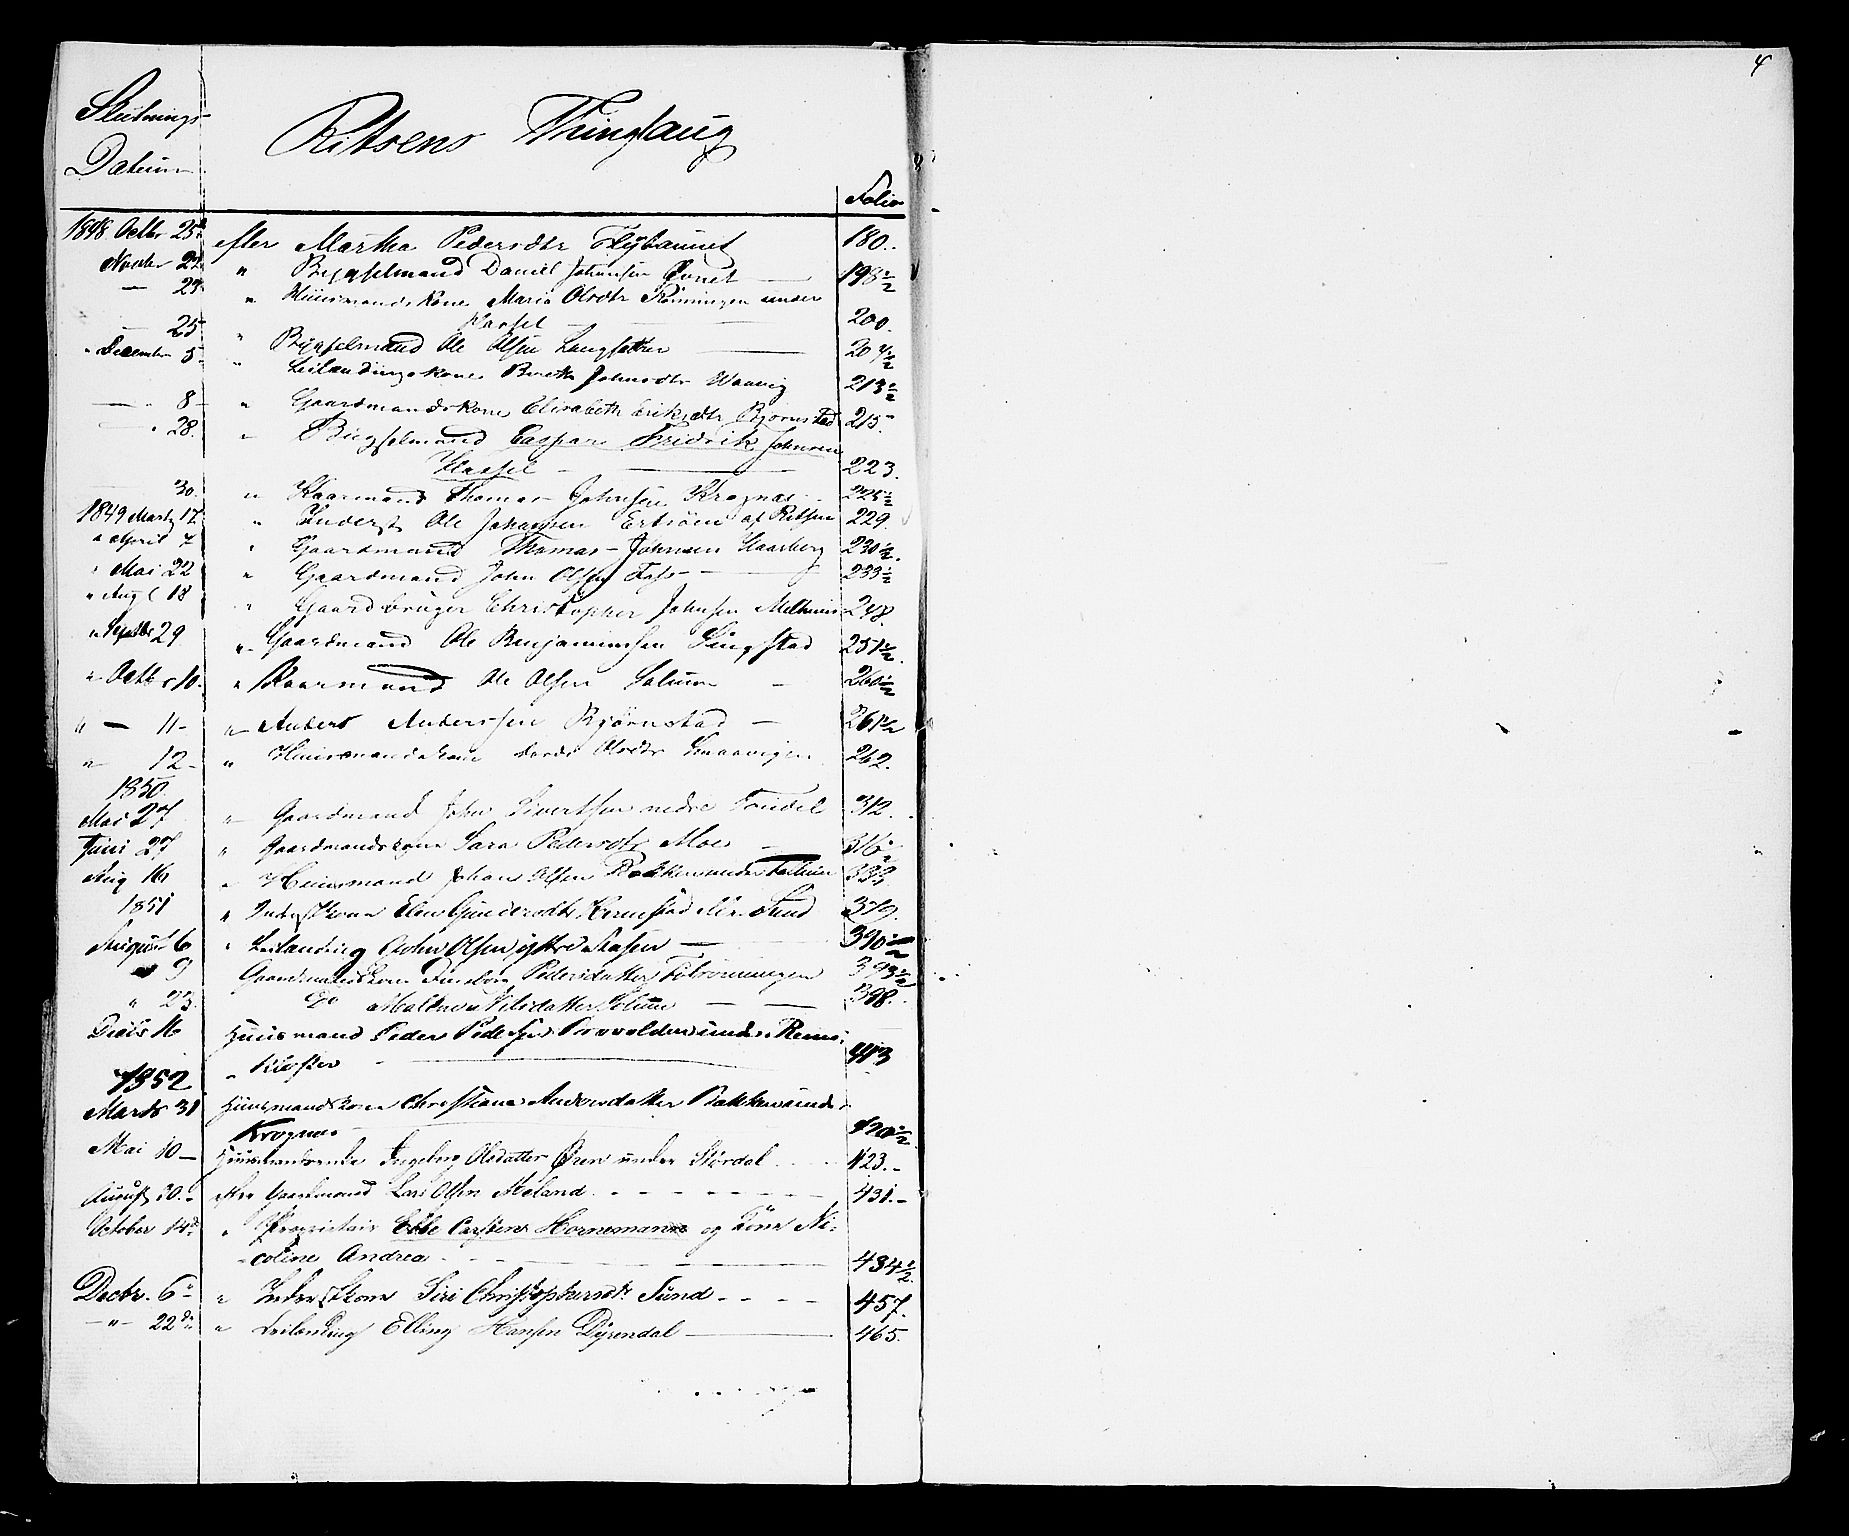 4
Slutnings-
Datum
Ritsens Thinglaug
Folio
1848 Octbr 25 efter Martha Pedersdtr 180.
Novbr 22 " Bygselmand Daniel Johansen 198½
— 23 " Huusmandskone Maria Olsdtr Rønningen under
Hassel — 200.
— 25 " Bygselmand Ole Olsen Langsæther — 204½
" December 5 " Leilændingskone Bereth Johnsdtr Waavig 213½
— " 8 — " Gaardmandskone Elisabeth Eriksdtr Bjørnstad 215
" 28. " Bygselmand Caspar Fridrik Johnsen
Hassel — 223.
30. " Kaarmand Thomas Johnsen Krognæs 225½
1849 Marts 17 " Inderst Ole Johansen af Ritsen 229.
" April 7 " Gaardmand Thomas Johnsen Haarberg 230½
" Mai 22 " Gaardmand John Olsen — 233½
" Augt 18 " Gaardbruger Christopher Johnsen Melhuus 248.
" Septbr 29 " Gaardmand Ole Benjaminsen Singstad 251½
" Octbr 10. " Kaarmand Ole Olsen Solum — 260½
" — 11 — " Anders Anderssen Bjørnstad — 261½
" 12 — " Huusmandskone Olsdtr 262.
1850.
Mai 27 " Gaardmand John Sivertsen nedre 312.
Juni 27 " Gaardmandskone Sara Pedersdtr Moe — 316
Aug 16 " Huusmand Johan Olsen Bakken under 333
1851 " Inderstkone Elen Gundersdtr Sund 379.
August 6 " Leilænding John Olsen ystre 390½
" 9 Gaardmandskone Pedersdatter 393½
" 23. Do Nilsdatter Solum — 398.
Decbr 16 Huusmand Peder Pedersen under Reins
" Kloster — 413
1852
Marts 31 Huusmandskone Christiane Andersdatter Bakken under
Krognæs — 420½
Mai 10 — Huusmandsenke Ingeborg Olsdatter Øren under Størdal 423.
August 30. — efter Gaardmand Lars Olsen Moland 431.
October 14de " Proprietair Ebbe Carstens Hornemann og Kone Ni-
coline Andrea — 434½
Decbr. 6 " Inderstkone Siri Christophersdtr Sund 457.
— " — 22de " Leilænding Elling Hansen Dyrendal — 465.